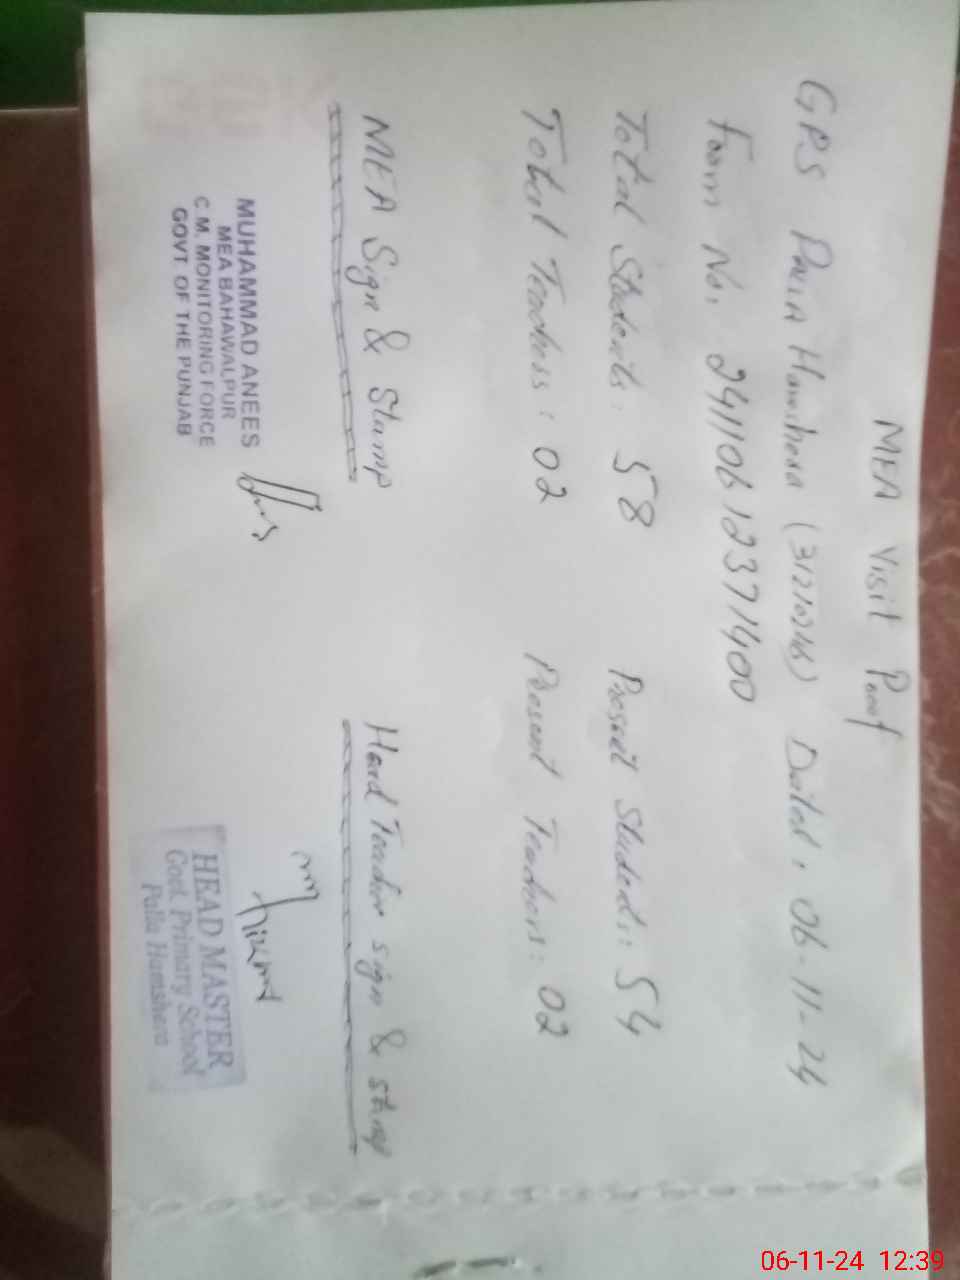 MEA Visit Proof
GPS Palla Hamshera (31210246) Dated. 06-11-24
Form No. 24110612371400
Total Students: 58 Present Students: 54
Total Teachers: 02 Present Teachers: 02
MEA Sign & Stamp Head Teacher sign & stamp
MUHAMMAD ANEES
MEA BAHAWALPUR
C.M. MONITORING FORCE
GOVT. OF THE PUNJAB
HEAD MASTER
Govt. Primary School
Palla Hamshera
06-11-24 12:39